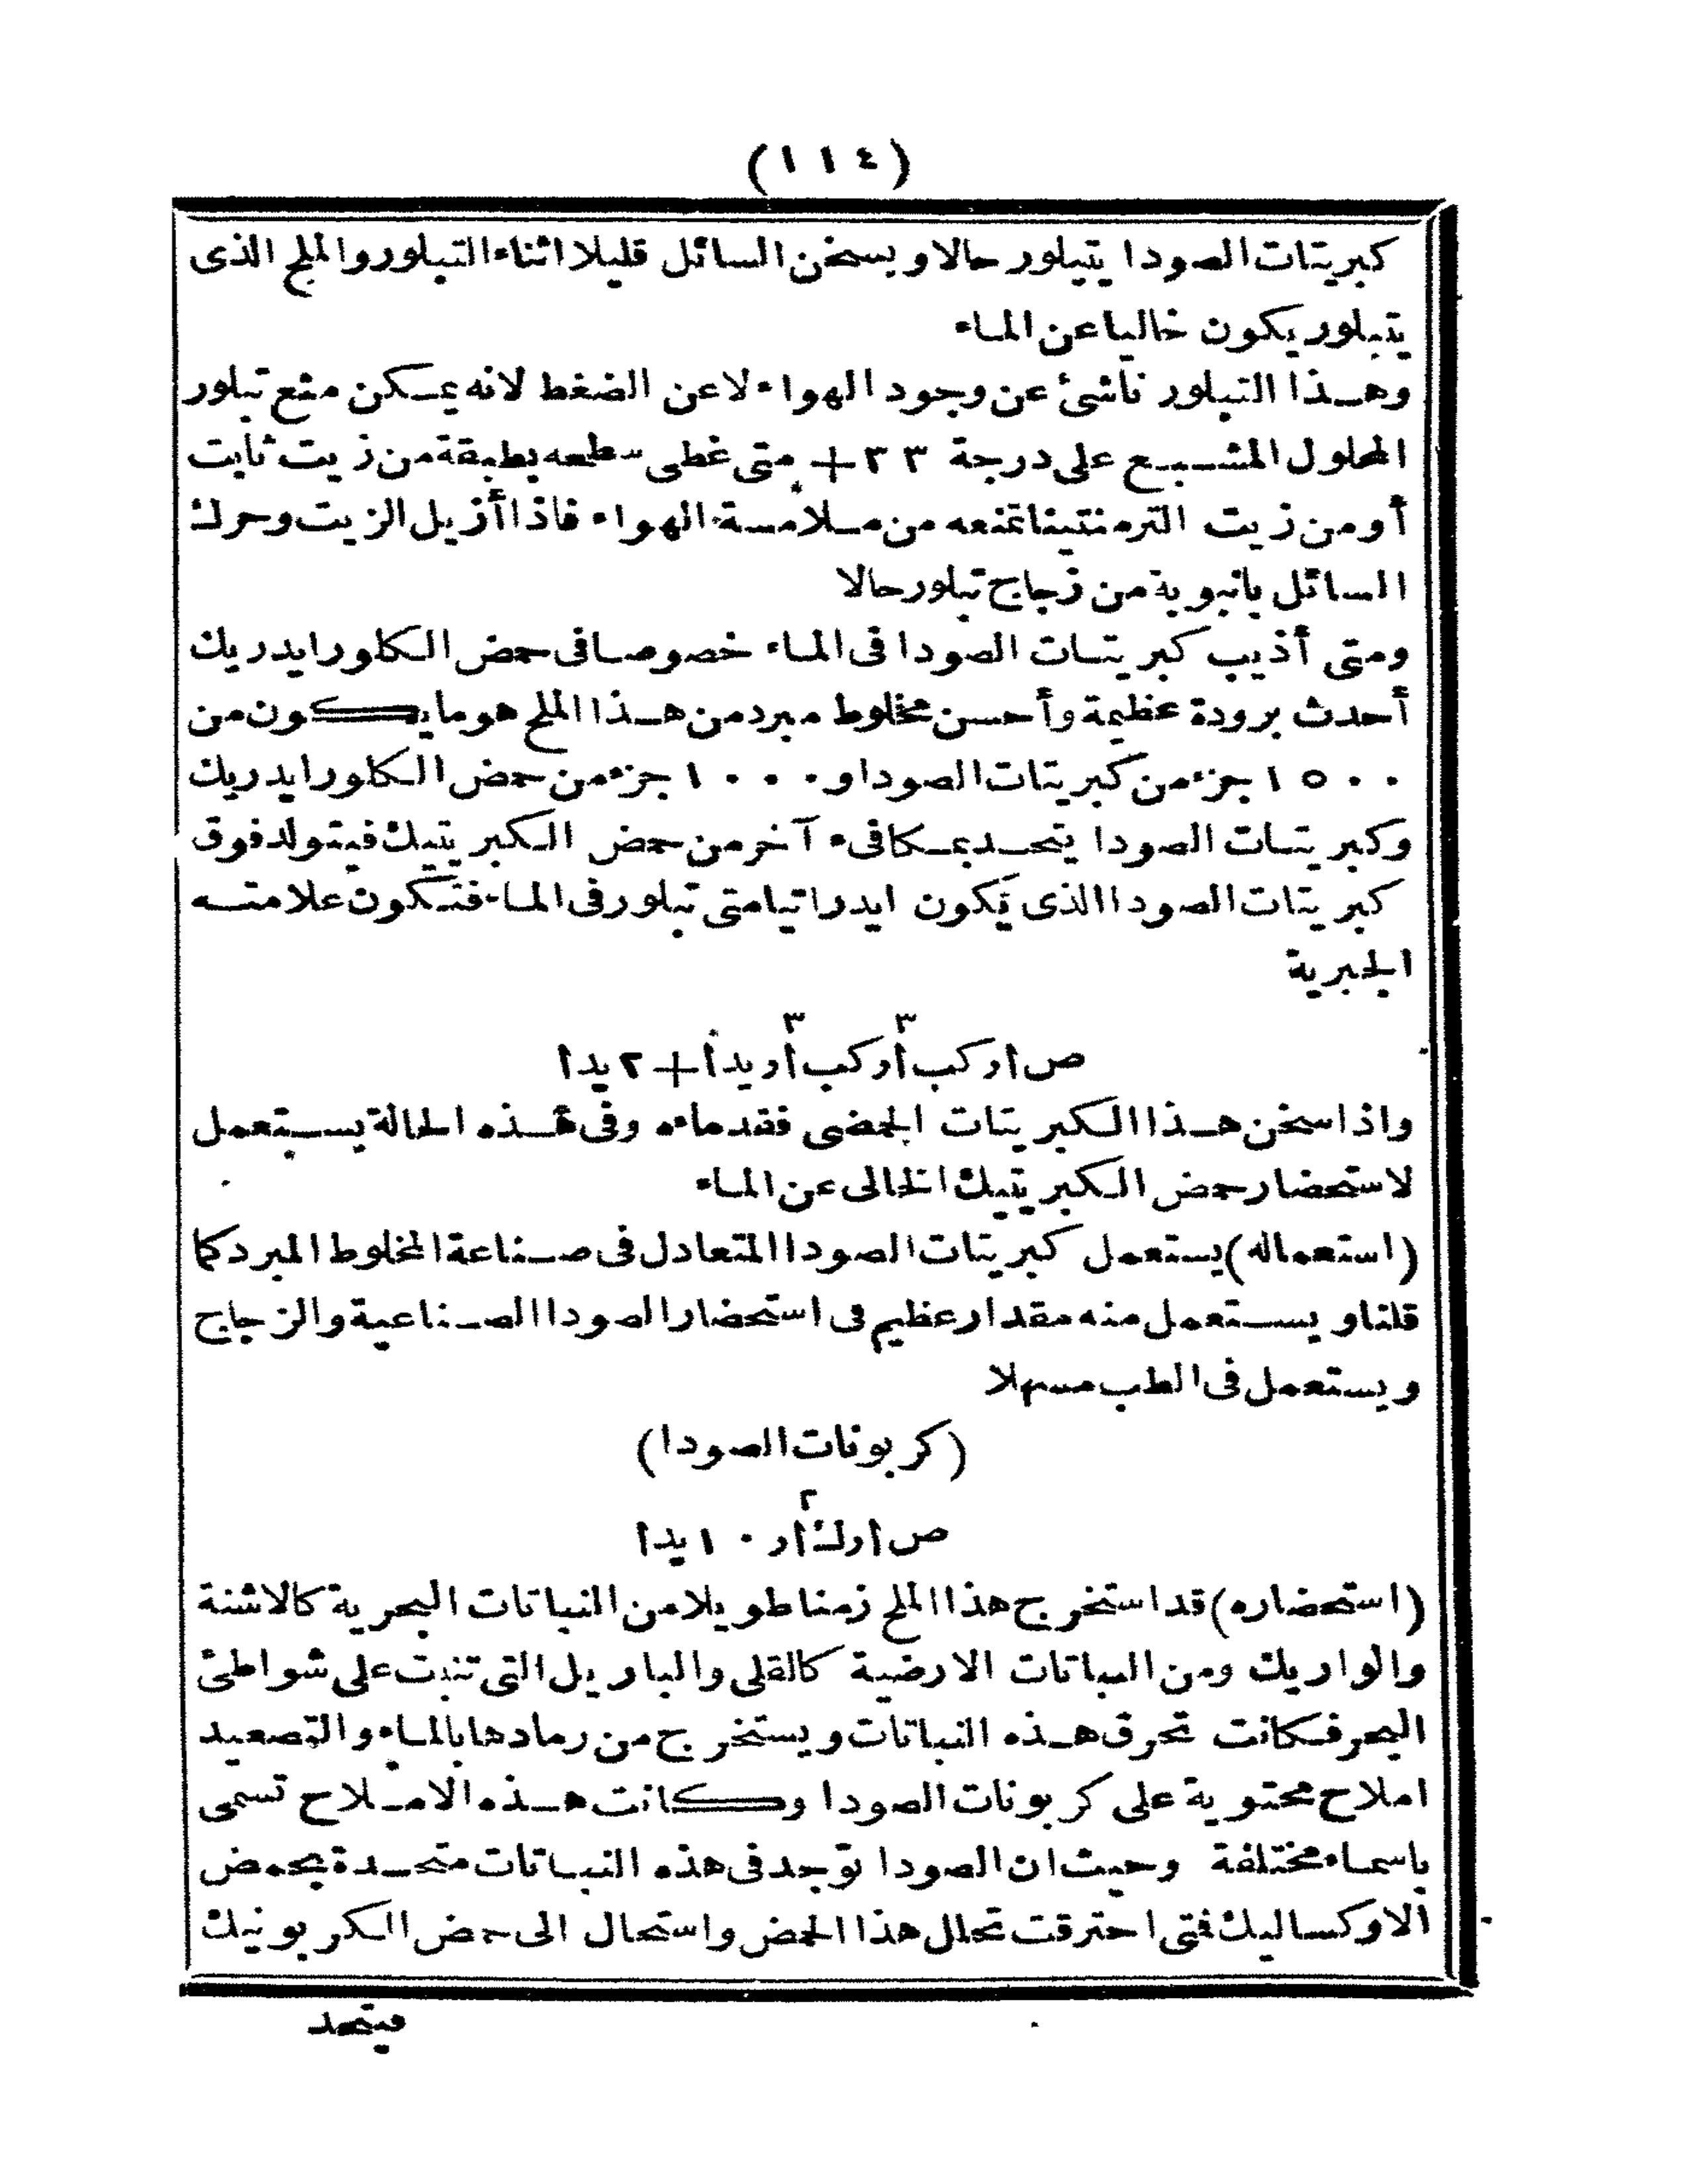 (١١٤)
كبريتات الصودا يتبلور حالا ويسخن السائل قليلا اثناء التبلور والملح الذى
يتبلور يكون خاليا عن الماء
وهذا التبلور ناشئ عن وجود الهواء لا عن الضغط لانه يمكن منع تبلور
المحلول المشبع على درجة ٣٣ + متى غطى سطحه بطبقة من زيت ثابت
أو من زيت الترمنتينا تمنعه من ملامسة الهواء فاذا أزيل الزيت وحرك
السائل بانبوبة من زجاج تبلور حالا
ومتى أذيب كبريتات الصودا فى الماء خصوصا فى حمض الكلورايدريك
أحدث برودة عظيمة وأحسن مخلوط مبرد من هذا الملح هو ما يكون من
١٥٠٠ جزء من كبريتات الصودا و ١٠٠٠ جزء من حمض الكلورايدريك
وكبريتات الصودا يتحد بمكافىء آخر من حمض الكبريتيك فيتولد فوق
كبريتات الصودا الذى يكون ايدراتيا متى تبلور فى الماء فتكون علامته
الجبرية
٣ ٣
ص ا ر كب أ ر كب أ ر يد أ + ٢ يد ا
واذا سخن هذا الكبريتات الحمضى فقد ماءه وفى هذه الحالة يستعمل
لاستحضار حمض الكبريتيك الخالى عن الماء
(استعماله) يستعمل كبريتات الصودا المتعادل فى صناعة المخلوط المبرد كما
قلنا ويستعمل منه مقدار عظيم فى استحضار الصودا الصناعية والزجاج
ويستعمل فى الطب مسهلا
(كربونات الصودا)
٢
ص ا ر ك أ ر ١٠ يد ا
(استحضاره) قد استخرج هذا الملح زمنا طويلا من النباتات البحرية كالاشنة
والواريك ومن النباتات الارضية كالقلى والباريل التى تنبت على شواطئ
البحر فكانت تحرق هذه النباتات ويستخرج من رمادها بالماء والتصعيد
املاح محتوية على كربونات الصودا وكانت هذه الاملاح تسمى
باسماء مختلفة وحيث ان الصودا توجد فى هذه النباتات متحدة بحمض
الاوكساليك فتى احترقت تحلل هذا الحمض واستحال الى حمض الكربونيك
فيتحد